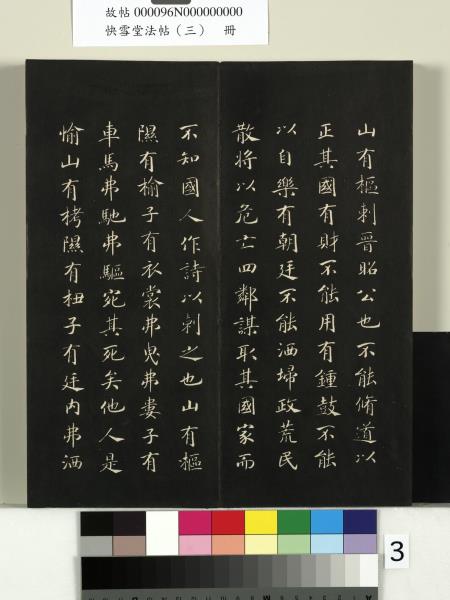 故帖 000096N000000000
快雪堂法帖（三） 冊
山有樞刺晉昭公也不能脩道以
正其國有財不能用有鍾鼓不能
以自樂有朝廷不能洒埽政荒民
散將以危亡四鄰謀取其國家而
不知國人作詩以刺之也山有樞
隰有榆子有衣裳弗曳弗婁子有
車馬弗馳弗驅宛其死矣他人是
愉山有栲隰有杻子有廷內弗洒
3